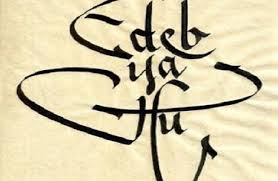 Edeb
ya
Hu